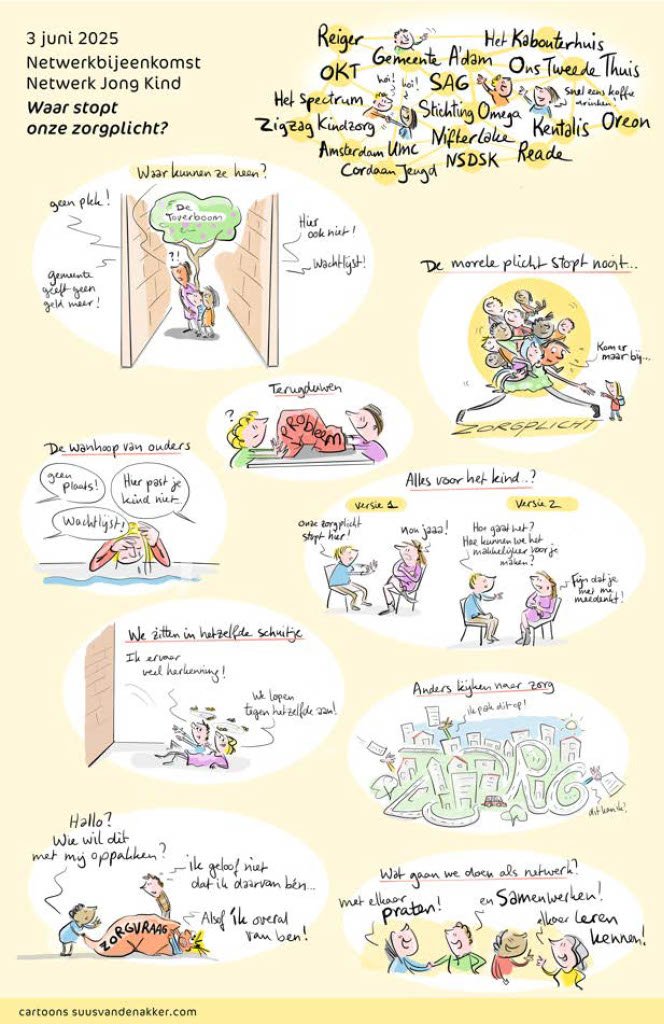 3 juni 2025
Netwerkbijeenkomst
Netwerk Jong Kind
Waar stopt
onze zorgplicht?
Reiger
Het Kabouterhuis
Gemeente A'dam
OKT
Ons Tweede Thuis
hoi!
hoi!
SAG
Snel eens koffie
drinken!
Het Spectrum
Stichting Omega
Zigzag Kindzorg
Nifterlake
Kentalis
Oreon
Amsterdam UMC
NSDSK
Reade
Cordaan Jeugd
Waar kunnen ze heen?
geen plek!
De
Toverboom
?!
Hier
ook niet!
Wachtlijst!
gemeente
geeft geen
geld meer!
De morele plicht stopt nooit...
Kom er
maar bij...
ZORGPLICHT
Terugduwen
?
PROBLEEM
De wanhoop van ouders
geen
plaats!
Hier past je
kind niet..
Wachtlijst!
Alles voor het kind..?
Versie 1
Versie 2
Onze zorgplicht
stopt hier!
nou jaaa!
Hoe gaat het?
Hoe kunnen we het
makkelijker voor je
maken?
Fijn dat je
met me
meedenkt!
We zitten in hetzelfde schuitje
Ik ervaar
veel herkenning!
We lopen
tegen hetzelfde aan!
Anders kijken naar zorg
ik pak dit op!
ZORG
dit kan ik!
Hallo?
Wie wil dit
met mij oppakken?
ik geloof niet
dat ik daarvan ben...
ZORGVRAAG
Alsof ík overal
van ben!
Wat gaan we doen als netwerk?
met elkaar
praten!
en Samenwerken!
elkaar leren
kennen!
cartoons suusvandenakker.com